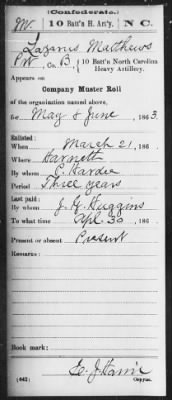 (Confederate.)
M. 10 Batt'n H. Art'y. N C.
Lazarus Matthews
Pvt, Co. B, 10 Batt'n North Carolina
Heavy Artillery.
Appears on
Company Muster Roll
of the organization named above,
for May & June, 1863.
Enlisted:
When March 21, 1863.
Where Harnett
By whom C. Hardie
Period Three years
Last paid:
By whom J. H. Huggins
To what time Apl 30, 1863
Present or absent Present
Remarks:
Book mark:
(642) Copyist.